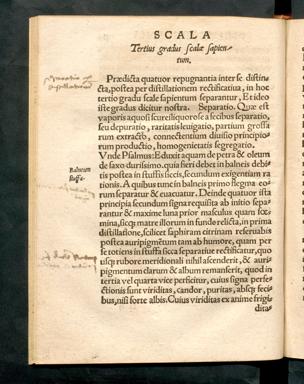 SCALA
Tertius gradus scalæ sapien-
tum.
Prædicta quatuor repugnantia inter se distin-
cta, postea per distillationem rectificatiua, in hoc
tertio gradu scale sapientum separantur, Et ideo
iste gradus dicitur nostra. Separatio. Quæ est
vaporis aquosi seu re iliquorose a fecibus separatio,
seu depuratio, raritatis leuigatio, partium grossa
rum extractio, connectentium diuisio principio
rum productio, homogenietatis segregatio.
Vnde Psalmus: Eduxit aquam de petra & oleum
de saxo durissimo, quia fieri debet in balneis debi
tis postea in stuffis siccis, secundum exigentiam ra
tionis. A quibus tunc in balneis primo flegma eo-
rum separatur & euacuatur. Deinde quatuor ista
principia secundum signa requisita ab initio sepa-
rantur & maxime luna prior masculus quam fœ-
mina, sicq; matre illorum in fundo relicta, in prima
distillatione, scilicet saphiram citrinam reseruabis
postea auripigmentum tam ab humore, quam per
se totiens in stuffa sicca separatiue rectificatur, quo
usq; rubore meridionali nihil ascenderit, & auri-
pigmentum clarum & album remanserit, quod in
tertia vel quarta vice perficitur, cuius signa perfe-
ctionis sunt viriditas, candor, puritas, absq; feci-
bus, nisi forte albis. Cuius viriditas ex anime frigi
dita-
Balneum
stuffa.